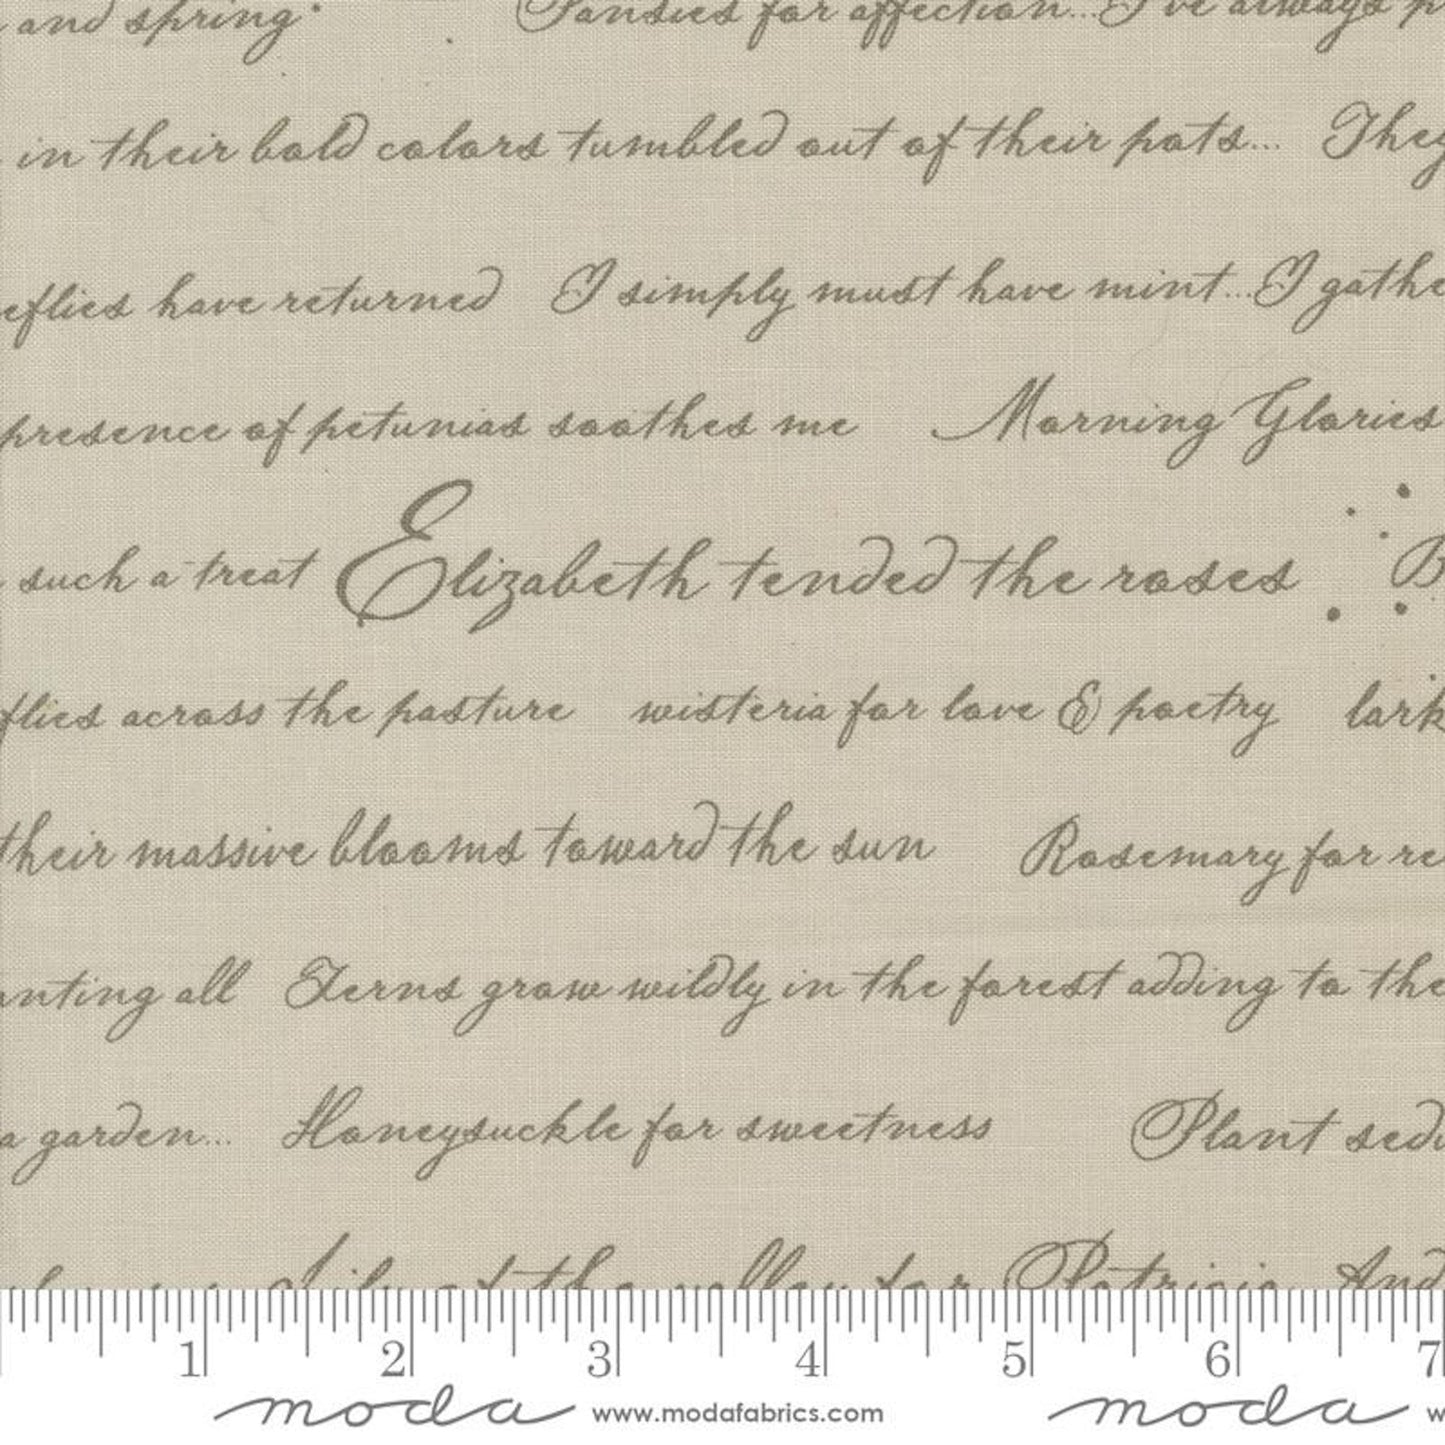 and spring Pansies for affection...I've always
in their bold colors tumbled out of their pots... They
eflies have returned I simply must have mint...I gathe
presence of petunias soothes me Morning Glories
such a treat Elizabeth tended the roses B
flies across the pasture wisteria for love & poetry lark
their massive blooms toward the sun Rosemary for re
anting all Ferns grow wildly in the forest adding to the
a garden... Honeysuckle for sweetness Plant sed
Lily of the valley for Patricia And
1 2 3 4 5 6 7
moda www.modafabrics.com moda w